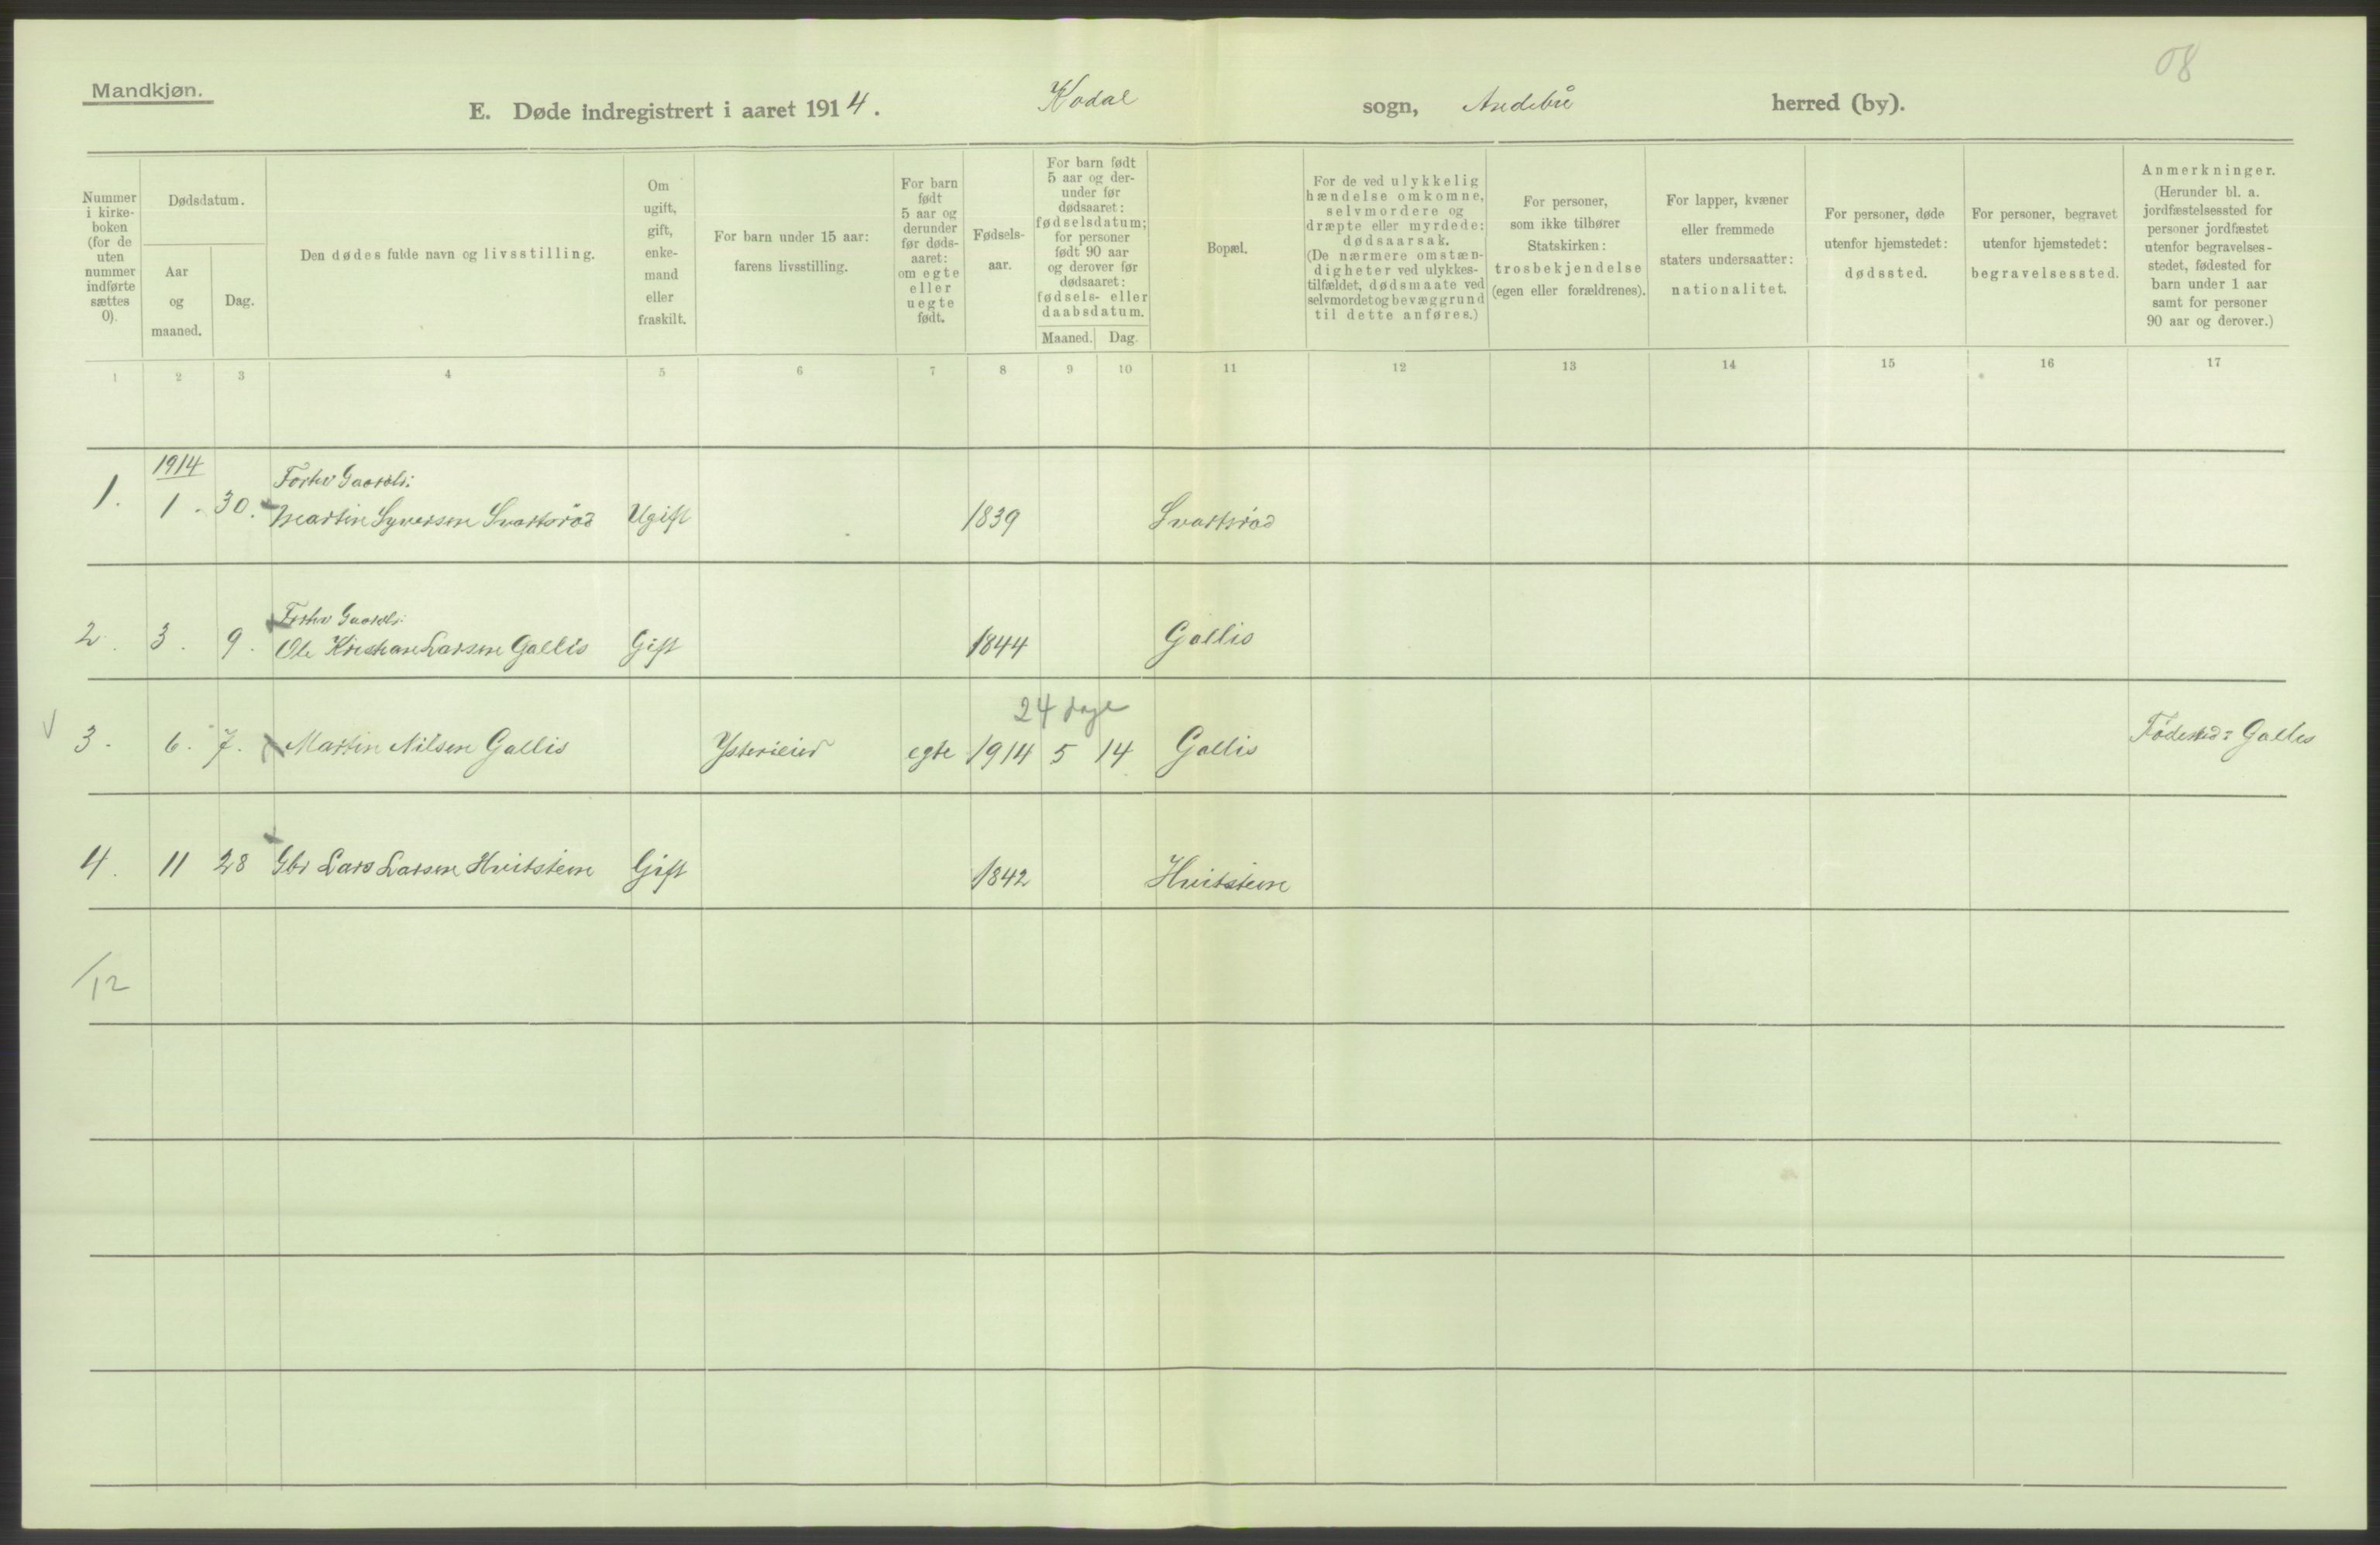 08
Mandkjøn.
E. Døde indregistrert i aaret 1914. Kodal sogn, Andebu herred (by).
Nummer
i kirke-
boken
(for de
uten
nummer
indførte
sættes
0).
Dødsdatum.
Aar
og
maaned.
Dag.
Den dødes fulde navn og livsstilling.
Om
ugift,
gift,
enke-
mand
eller
fraskilt.
For barn under 15 aar:
farens livsstilling.
For barn
født
5 aar og
derunder
før døds-
aaret:
om egte
eller
uegte
født.
Fødsels-
aar.
For barn født
5 aar og der-
under før
dødsaaret:
fødselsdatum;
for personer
født 90 aar
og derover før
dødsaaret:
fødsels- eller
daabsdatum.
Maaned. Dag.
Bopæl.
For de ved ulykkelig
hændelse omkomne,
selvmordere og
dræpte eller myrdede:
dødsaarsak.
(De nærmere omstæn-
digheter ved ulykkes-
tilfældet, dødsmaate ved
selvmordet og bevæggrund
til dette anføres.)
For personer,
som ikke tilhører
Statskirken:
trosbekjendelse
(egen eller forældrenes).
For lapper, kvæner
eller fremmede
staters undersaatter:
nationalitet.
For personer, døde
utenfor hjemstedet:
dødssted.
For personer, begravet
utenfor hjemstedet:
begravelsessted.
Anmerkninger.
(Herunder bl. a.
jordfæstelsessted for
personer jordfæstet
utenfor begravelses-
stedet, fødested for
barn under 1 aar
samt for personer
90 aar og derover.)
1 2 3 4 5 6 7 8 9 10 11 12 13 14 15 16 17
1914
Forhv Gaardbr:
1. 1. 30. Martin Syversen Svartsrød Ugift 1839 Svartsrød
Forhv Gaardbr:
2. 3. 9. Ole Kristian Larsen Gallis Gift 1844 Gallis
24 dage
3. 6. 7. Martin Nilsen Gallis Ysterieier egte 1914 5 14 Gallis Fødested: Gallis
4. 11 28 Gbr Lars Larsen Hvitstein Gift 1842 Hvitstein
/12